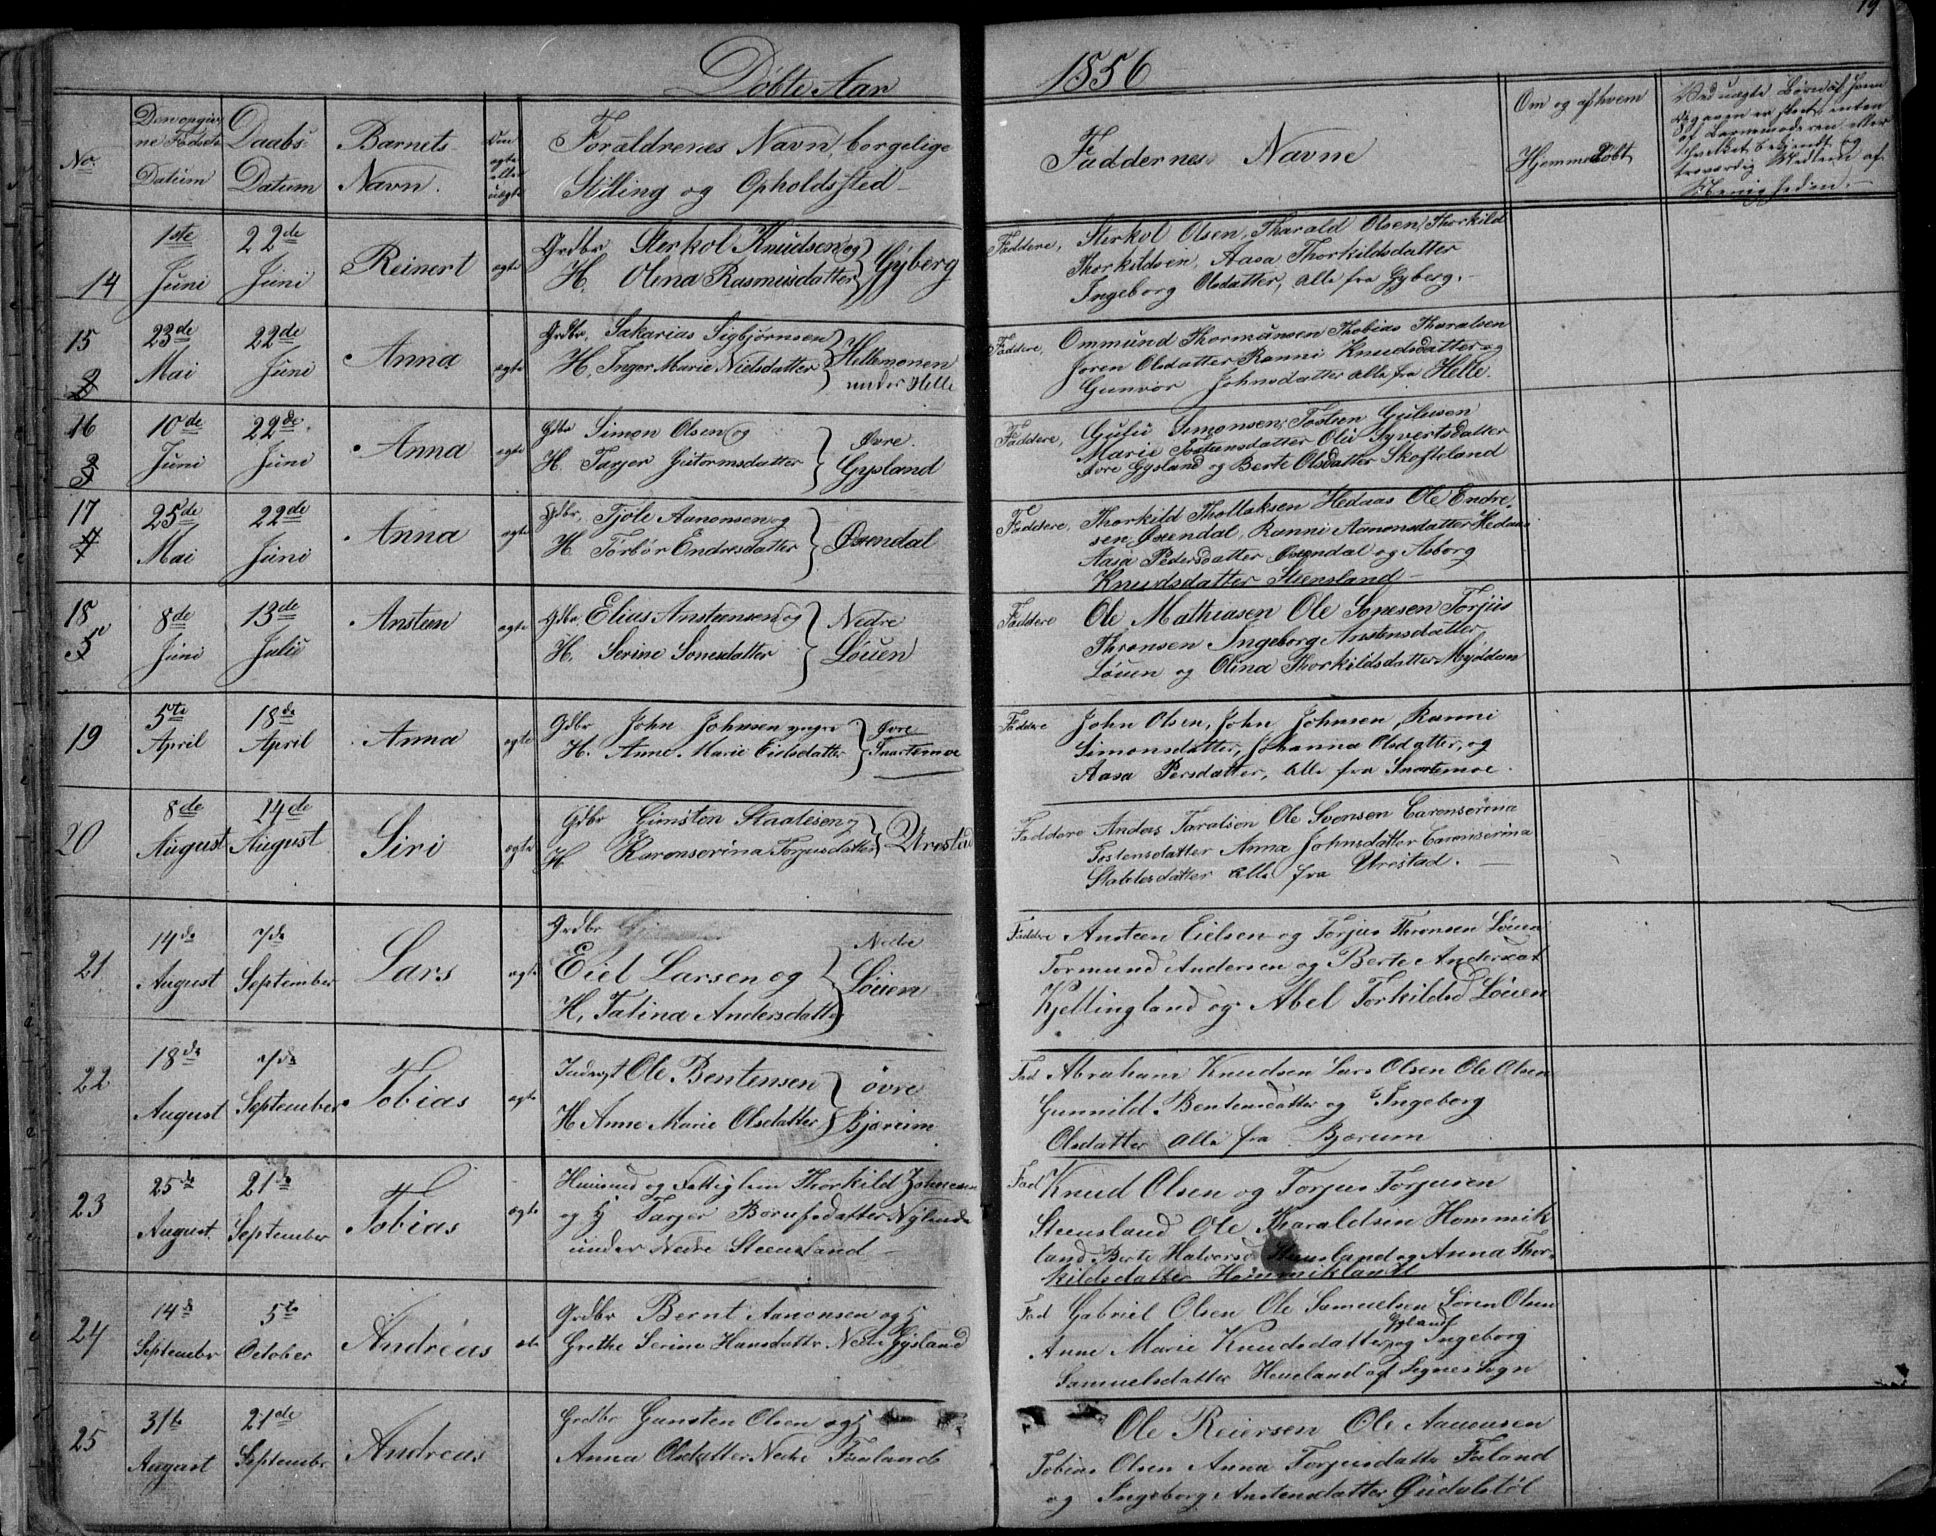 Döbte Aar 1856
No.
Den opgiv-
ne Fødsels
Datum
Daabs-
Datum
Barnets
Navn.
ægte
eller
uægte
Forældrenes Navn, borgelige
Stilling og Opholdssted
Faddernes Navne
Om og af hvem
Hjemmedöbt
Ved uægte Börn af hvem
Menigheden.
14 1ste Juni 22de Juni Reinert ægte
Grdbr Sterkol Knudsen og
H. Olena Rasmusdatter
Gyberg
Faddere, Sterkol Olsen, Tharald Olsen, Thorkild
Thorkildsen, Aasa Thorkildsdatter
Ingeborg Olsdatter, alle fra Gyberg.
15 2 23de Mai 22de Juni Anna ægte
Grdbr. Sakarias Sigbjørnsen
H. Inger Marie Nielsdatter
Hellemonen
under Helle
Faddere, Ommund Thormundsen Thobias Tharalsen
Joren Olsdatter Ranni Knudsdatter og
Gunvor Johnsdatter alle fra Helle.
16 3 10de Juni 22de Juni Anna ægte
Gdbr Simon Olsen og
H. Tarjer Gutormsdatter
Øvre
Gysland
Faddere, Simonsen, Tosten
Marie Olsdatter Syvertsdatter
øvre Gysland og Berte Olsdatter Skofteland
17 4 25de Mai 22de Juni Anna ægte
Gdbr, Tjöle Aanonsen og
H Torbör Endresdatter
Øxendal
Faddere, Thorkild Thollaksen Hedaas Ole Endre
sen Øxendal, Ranni Aanonsdatter Hedaas
Aasa Pedersdatter Øxendal og Asborg
Knudsdatter Steensland
18 5 8de Juni 13de Julii Ansteen ægte
Gdbr Elias Ansteensen og
H. Serine Sonesdatter
Nedre
Löuen
Faddere Ole Mathiasen Ole Sonesen Torjus
Thronsen Ingeborg Anstensdatter
Löuen og Olina Thorkildsdatter Myddern
19 5te April 18de April Anna ægte
Gdbr John Johnsen yngre
H. Anne Marie Eielsdatter
Øvre
Snartemoe
Faddere John Olsen, John Johnsen, Ranni
Simonsdatter, Johanna Olsdatter, og
Aasa Persdatter, alle fra Snartemoe.
20 8de August 24de August Siri ægte
Gdbr Gunsten Staalesen og
H Karenserina Torjusdatter
Urestad
Faddere Anders Taralsen Ole Svensen Carenserina
Tostensdatter Anna Johnsdatter Carenserina
Stahlesdatter alle fra Urestad.
21 14de August 7de September Lars ægte
Grdbr
Eiel Larsen og
H, Talina Andersdatte
Nedre
Löuen
Faddere Ansteen Eielsen og Torjus Thronsen Löuen
Tormund Andersen og Berte Andersdat
Kjellingland og Abel Torkildsd Löuen
22 18de August 7de September Tobias ægte
Inderst Ole Bentensen
H Anne Marie Olsdatter
övre
Bjærum
Fad Abraham Knudsen Lars Olsen Ole Olsen
Gunnild Bentensdatter og Ingeborg
Olsdatter alle fra Bjærum
23 25de August 21de September Tobias ægte
Huusmd og Fattiglem Thorkild Johnesen
og H Tarjer Berufsdatter Nylund
under Nedre Steensland
Fad Knud Olsen og Torjus Torjusen
Steensland Ole Tharaldsen Hommik
land, Berte Halvorsd Steensland og Anna Thor-
kildsdatter Hommikland
24 14de September 5te October Andreas
Grdbr Bernt Aanonsen og H
Grethe Serine Hansdatter Nedre Gysland
Fad Gabriel Olsen Ole Samuelsen Sören Olsen
Gysland
Anne Marie Knudsdatter og Ingeborg
Samuelsdatter Houeland af Sogn
25 31te August 21de September Andreas
Grdbr Gunsten Olsen og H
Anna Olsdatter Nedre
Ole Reiersen Ole Aanensen
Tobias Olsen Anna Torjusdatter
og Ingeborg Anstensdatter